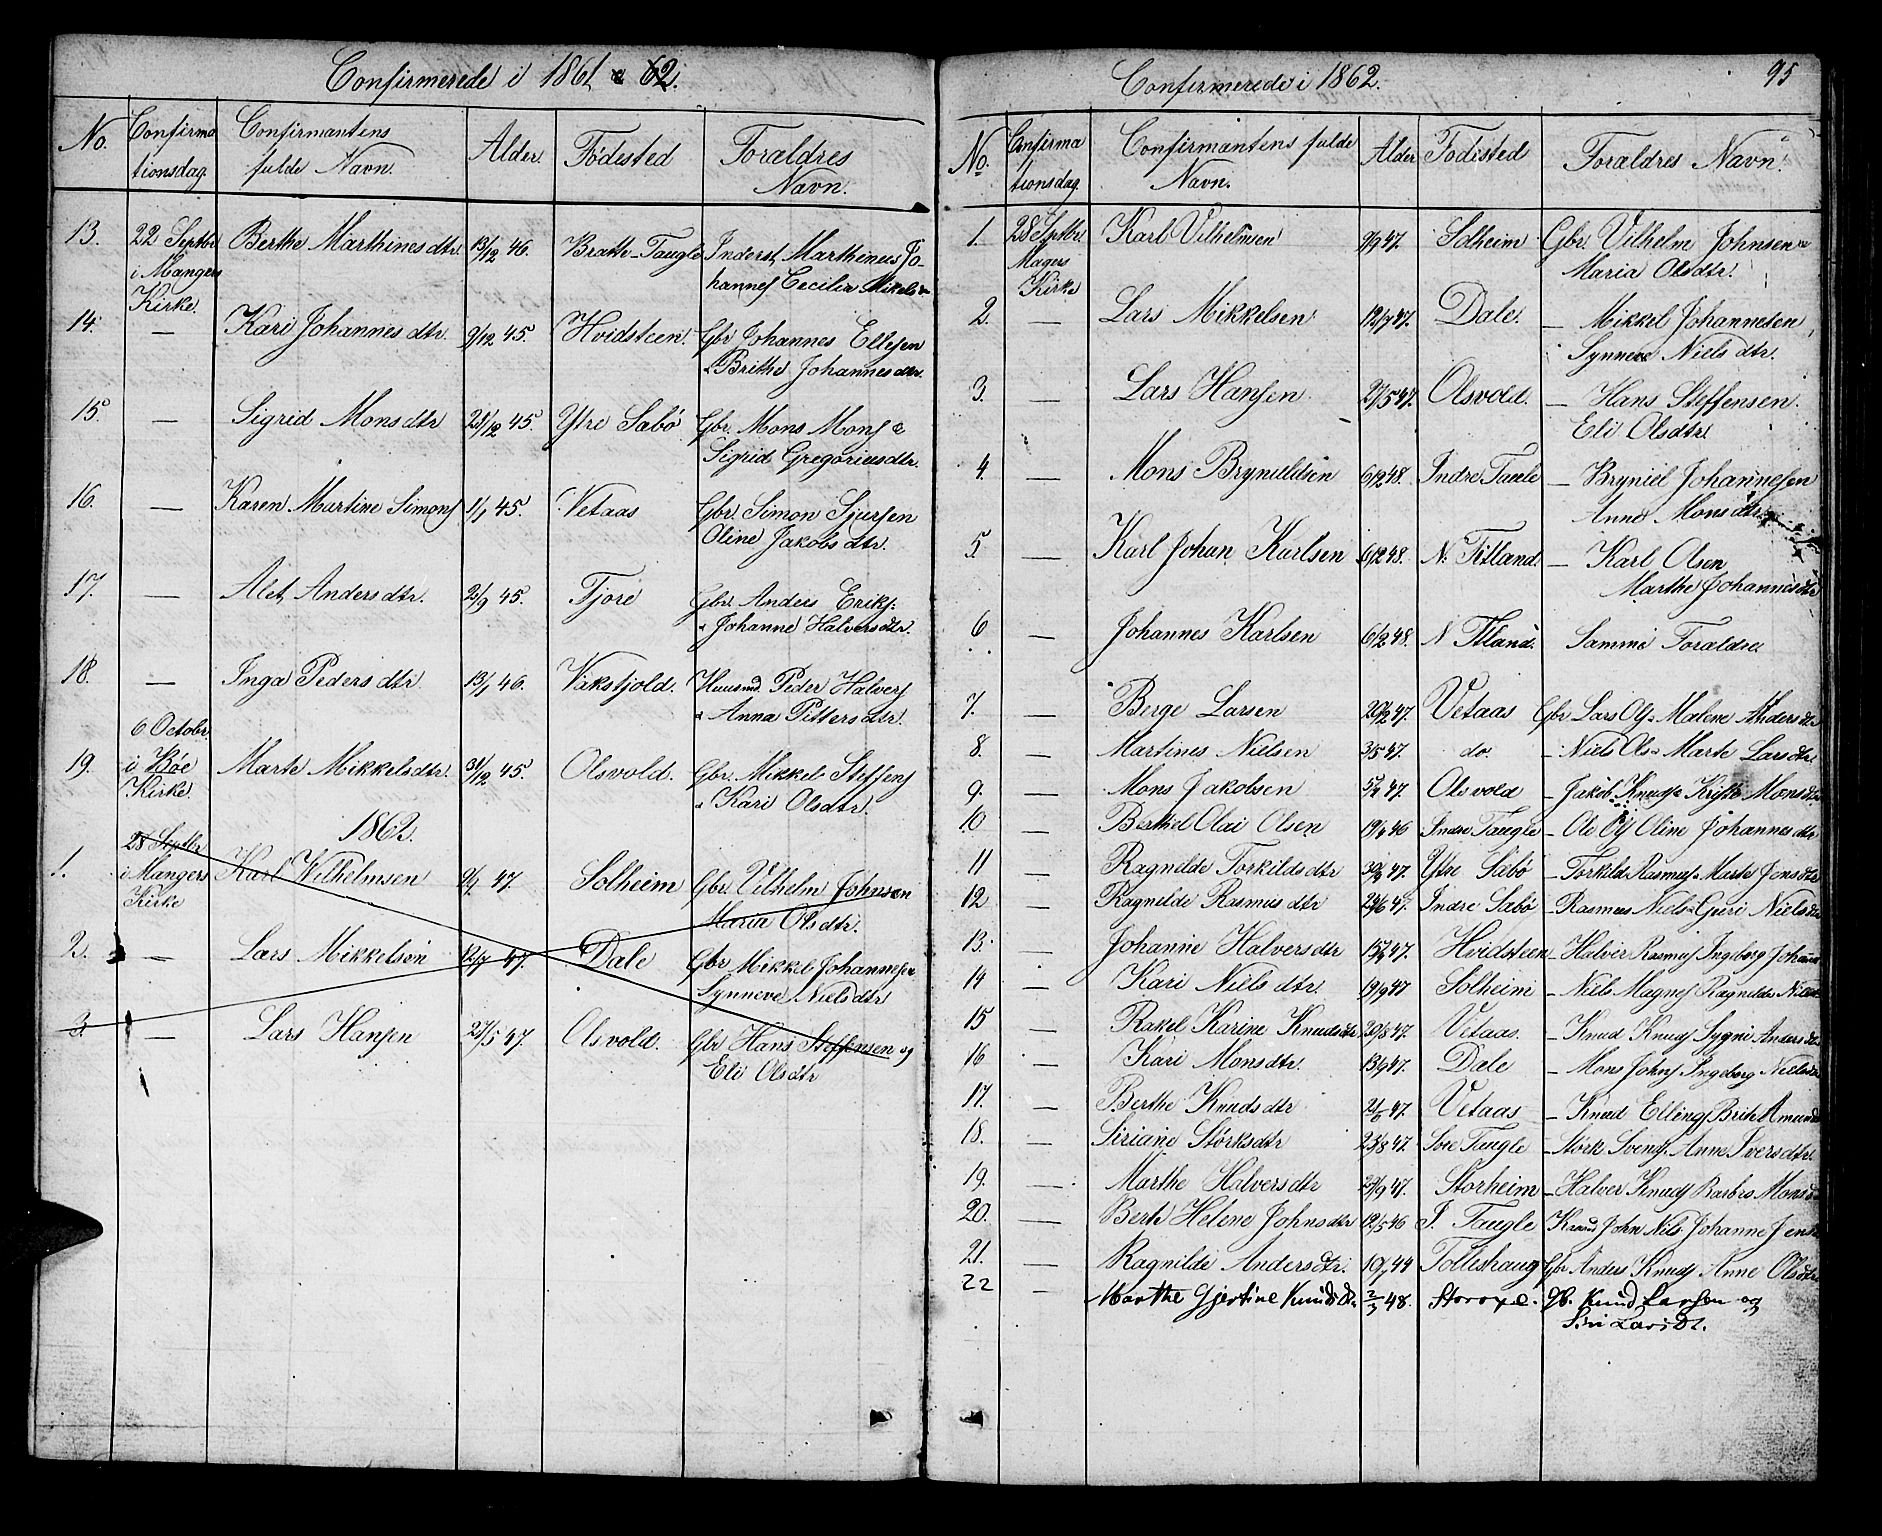 Confirmerede i 1861 & 62.
No. Confirma tionsdag. Confirmantens fulde Navn. Alder. Fødested Foraldres Navn.
13. 22 Septbr i Mangers Kirke. Berthe Marthinesdtr. 13/12 46. Bratte-Taugle Inderst Marthinus Jo-
hannes Cecilia Mikels
14. — Kari Johannesdtr. 9/12 45. Hvidsteen. Gbr Johannes Ellesen
Brithe Johannesdtr.
15. — Sigrid Monsdtr 28/12 45. Ytre Sabø Gbr. Mons Mons &
Sigrid Gregoriusdtr.
16. — Karen Martine Simons 1/1 45. Vetaas Gbr. Simon Sjursen
Oline Jakobsdtr.
17. — Alet Andersdtr. 2/9 45. Fjore Gbr. Anders Eriks.
Johanne Halversdtr.
18. — Inga Pedersdtr 13/1 46. Vakstjold. Huusmd. Peder Halvers
Anna Pettersdtr.
19. 6 Octobr. i Bøe Kirke. Marte Mikkelsdtr. 31/12 45. Olsvold. Gbr. Mikkel Steffens
Kari Olsdtr.
1862.
1. 28 Septbr i Mangers Kirke Karl Wilhelmsen 9/9 47. Solheim Gbr. Vilhelm Johnsen
Maria Olsdtr.
2. — Lars Mikkelsen 12/7 47. Dale Gbr Mikkel Johannesen
Synneve Nielsdtr
3 — Lars Hansen 27/5 47. Olsvold. Gbr Hans Steffensen og
Eli Olsdtr
Confirmerede i 1862. 95
No. Confirma tionsdag Confirmantens fulde Navn. Alder Fodested Foraldres Navn.
1. 28 Septbr. Magers Kirke Karl Vilhelmsen 9/9 47. Solheim Gbr. Vilhelm Johnsen &
Maria Olsdtr.
2. — Lars Mikkelsen 12/7 47. Dale. — Mikkel Johannesen
Synneve Nielsdtr.
3. — Lars Hansen 27/5 47. Olsvold. — Hans Steffensen.
Eli Olsdtr.
4. — Mons Brynildsen 6/2 48. Indre Taule — Bryniel Johannesen
Anne Monsdtr.
5. — Karl Johan Karlsen 6/2 48. N. Titland. — Karl Olsen
Marthe Johannesdtr
6 — Johannes Karlsen 6/2 48. N Titland. Samme Foraldre
7. — Berge Larsen 20/2 47. Vetaas Gbr Lars Ols. Malene Andersdtr
8. — Martines Nielsen 3/5 47. do. — Niels Ols. Marte Larsdtr.
9. — Mons Jakobsen 5/4 47. Olsvold — Jakob Knuds Kristi Monsdtr
10 — Berthel Olai Olsen 19/8 46 Indre Taugle — Ole Ols Oline Johannesdtr
11 — Ragnilde Torkildsdtr 30/8 47. Ytre Sæbø — Torkild Rasmus Marte Jensdtr
12 — Ragnilde Rasmusdtr 29/6 47. Indre Sæbø — Rasmus Niels Guri Nielsd
13. — Johanne Halversdtr 15/6 47. Hvidsteen — Halver Rasmus Ingeborg Johann
14 — Kari Nielsdtr. 19/9 47 Solheim — Niels Magnes Ragnilde Niels
15 — Rakel Karine Knudsdtr 20/8 47. Vetaas. — Knud Knuds Sygni Andersdtr
16 — Kari Monsdtr. 13/9 47. Dale — Mons Johns Ingeborg Nielsdtr
17. — Berthe Knudsdtr 2/6 47. Vetaas — Knud Ellings Brite Amunds
18. — Siriane Størksdtr 23/8 47. Søre Taugle — Størk Svends. Anne Iversdtr.
19. — Marthe Halversdtr 27/9 47. Storheim — Halver Knuds Barbro Mons
20. — Berte Helene Johnsdtr 12/5 46 I. Taugle Kaarmd John Nils. Johanne Jens
21. — Ragnilde Andersdtr. 10/1 44 Tolleshaug Gbr Anders Knuds Anne Olsdtr
22 — Marthe Gjertine Knudsdtr 2/3 48. Storoxe. Gb. Knud Larsen og
Siri Larsdt.